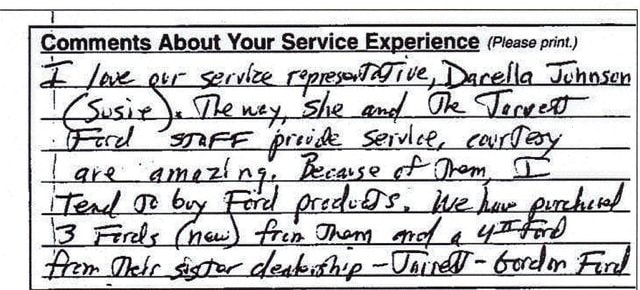 Comments About Your Service Experience (Please print.)
I love our service representative, Darella Johnson
(Susie). The way, She and The Jarrett
Ford STAFF provide Service, courtesy
are amazing. Because of Them, I
Tend To buy Ford products. We have purchased
3 Fords (new) from Them and a 4th Ford
from Their sister dealership - Jarrett - Gordon Ford